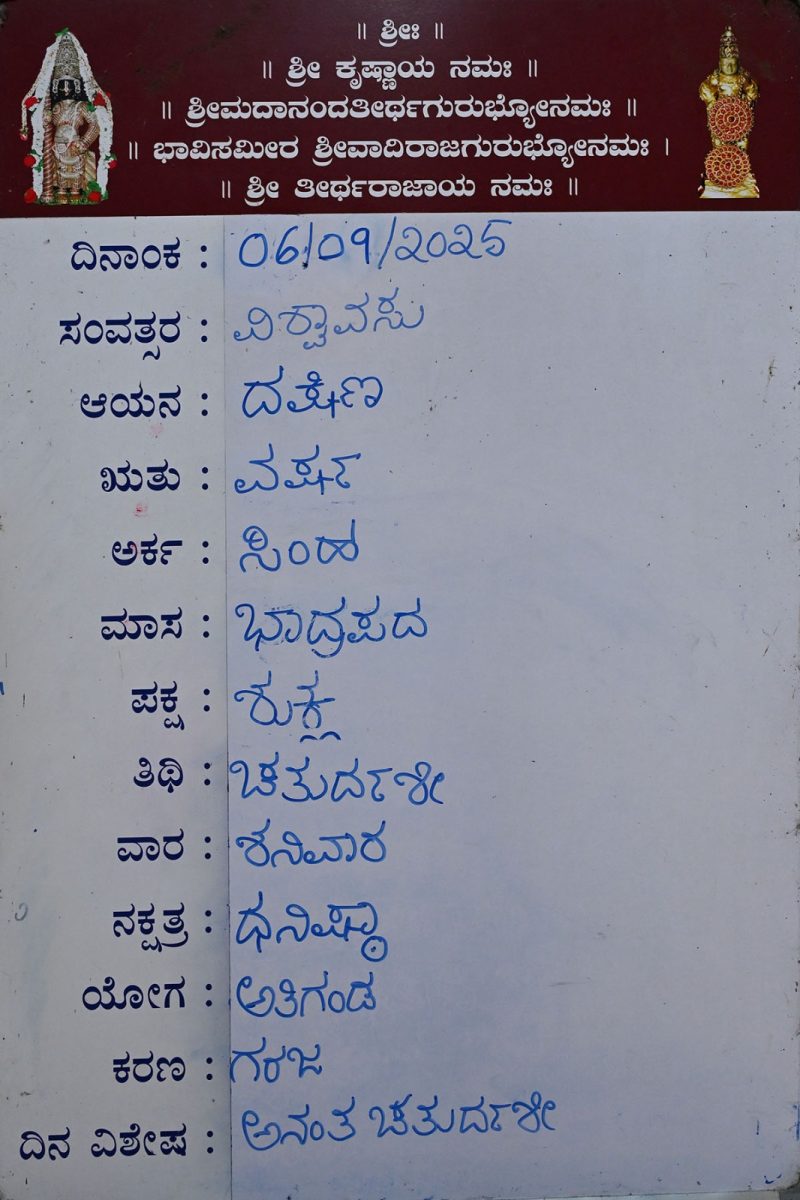 ॥ ಶ್ರೀಃ ॥
॥ ಶ್ರೀ ಕೃಷ್ಣಾಯ ನಮಃ ॥
॥ ಶ್ರೀಮದಾನಂದತೀರ್ಥಗುರುಭ್ಯೋನಮಃ ॥
॥ ಭಾವಿಸಮೀರ ಶ್ರೀವಾದಿರಾಜಗುರುಭ್ಯೋನಮಃ ।
॥ ಶ್ರೀ ತೀರ್ಥರಾಜಾಯ ನಮಃ ॥
ದಿನಾಂಕ : 06/09/2025
ಸಂವತ್ಸರ : ವಿಶ್ವಾವಸು
ಆಯನ : ದಕ್ಷಿಣ
ಋತು : ವರ್ಷ
ಅರ್ಕ : ಸಿಂಹ
ಮಾಸ : ಭಾದ್ರಪದ
ಪಕ್ಷ : ಶುಕ್ಲ
ತಿಥಿ : ಚತುರ್ದಶೀ
ವಾರ : ಶನಿವಾರ
ನಕ್ಷತ್ರ : ಧನಿಷ್ಠಾ
ಯೋಗ : ಅತಿಗಂಡ
ಕರಣ : ಗರಜ
ದಿನ ವಿಶೇಷ : ಅನಂತ ಚತುರ್ದಶೀ